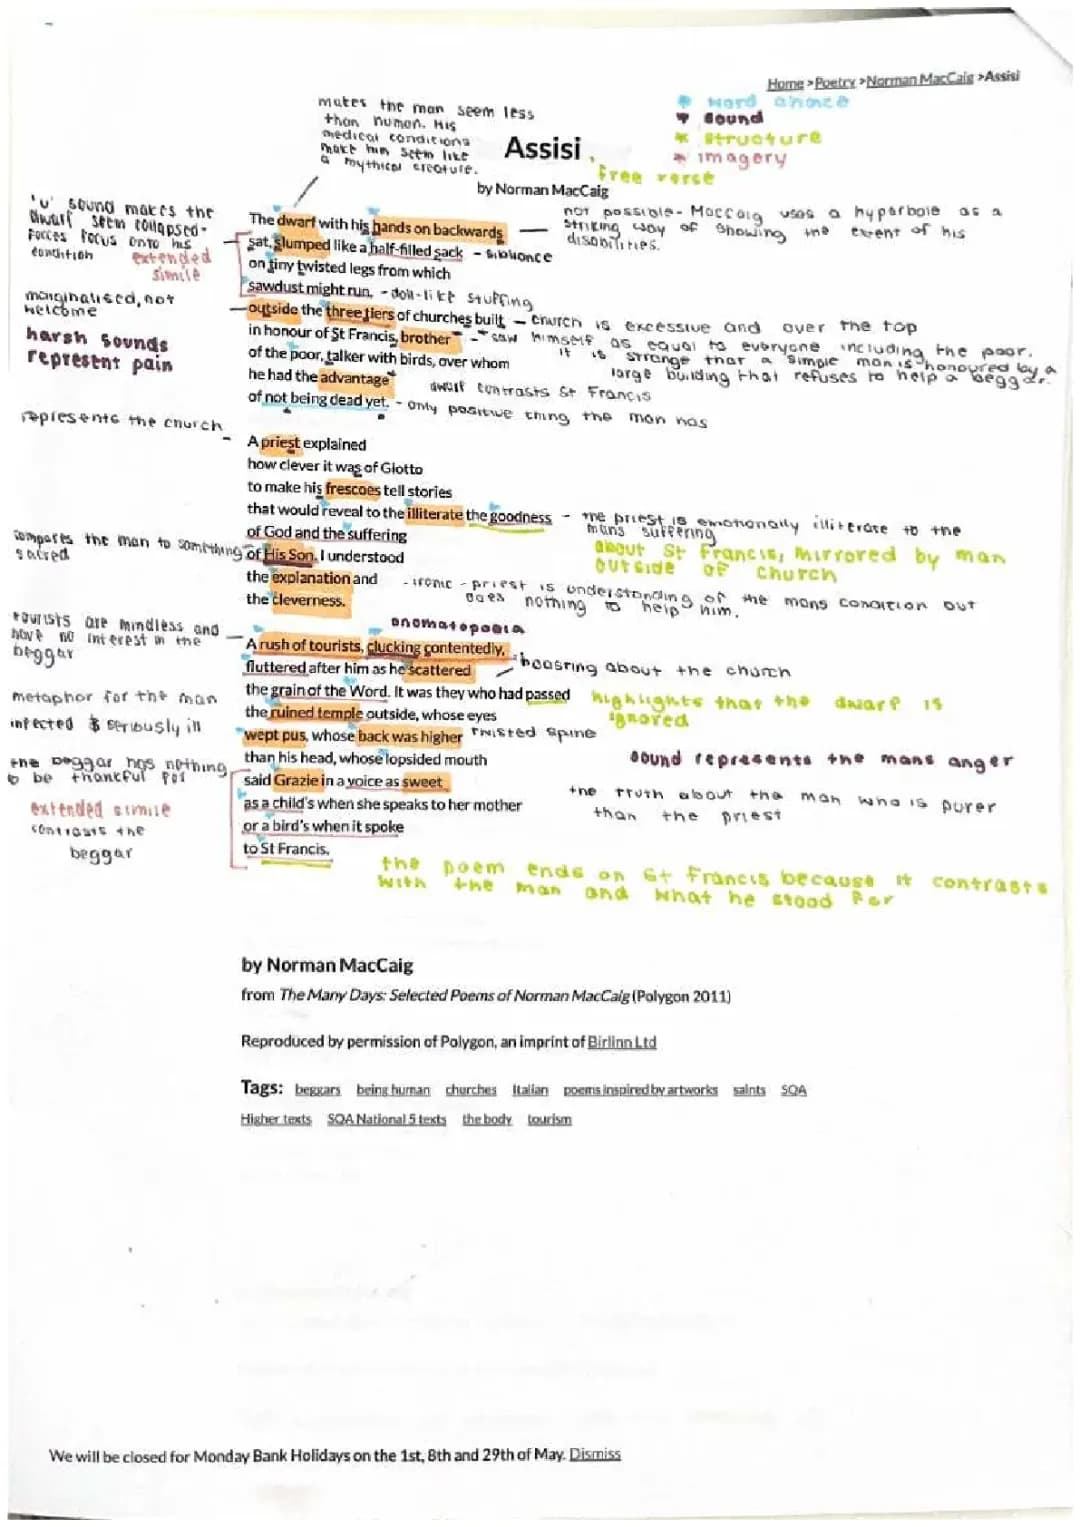 Home > Poetry > Norman MacCaig > Assisi
word choice
sound
structure
imagery
makes the man seem less
than human. His
medical conditions
make him seem like
a mythical creature.
Assisi
free verse
by Norman MacCaig
'u' sound makes the
dwarf seem collapsed-
forces focus onto his
condition
extended
simile
not possible - Maccaig uses a hyperbole as a
striking way of showing the extent of his
disabilities.
The dwarf with his hands on backwards
sat, slumped like a half-filled sack - sibilance
on tiny twisted legs from which
sawdust might run, - doll-like stuffing
marginalised, not
welcome
harsh sounds
represent pain
outside the three tiers of churches built - church is excessive and over the top
in honour of St Francis, brother - saw himself as equal to everyone including the poor.
it is strange that a simple man is honoured by a
large building that refuses to help a beggar.
of the poor, talker with birds, over whom
he had the advantage dwarf contrasts St Francis
of not being dead yet. - only positive thing the man has
represents the church
A priest explained
how clever it was of Giotto
to make his frescoes tell stories
that would reveal to the illiterate the goodness - the priest is emotionally illiterate to the
mans suffering
of God and the suffering
about St Francis, mirrored by man
outside of church
compares the man to something
sacred
of His Son. I understood
the explanation and - ironic - priest is understanding of the mans condition but
does nothing to help him.
the cleverness.
onomatopoeia
tourists are mindless and
have no interest in the
beggar
A rush of tourists, clucking contentedly,
boasting about the church
fluttered after him as he scattered
the grain of the Word. It was they who had passed
highlights that the dwarf is
ignored
metaphor for the man
the ruined temple outside, whose eyes
infected & seriously ill
wept pus, whose back was higher twisted spine
than his head, whose lopsided mouth
sound represents the mans anger
the beggar has nothing
to be thankful for
said Grazie in a voice as sweet
the truth about the man who is purer
than the priest
as a child's when she speaks to her mother
or a bird's when it spoke
to St Francis.
extended simile
contrasts the
beggar
the poem ends on St Francis because it contrasts
with the man and what he stood for
by Norman MacCaig
from The Many Days: Selected Poems of Norman MacCaig (Polygon 2011)
Reproduced by permission of Polygon, an imprint of Birlinn Ltd
Tags: beggars being human churches Italian poems inspired by artworks saints SQA
Higher texts SQA National 5 texts the body tourism
We will be closed for Monday Bank Holidays on the 1st, 8th and 29th of May. Dismiss